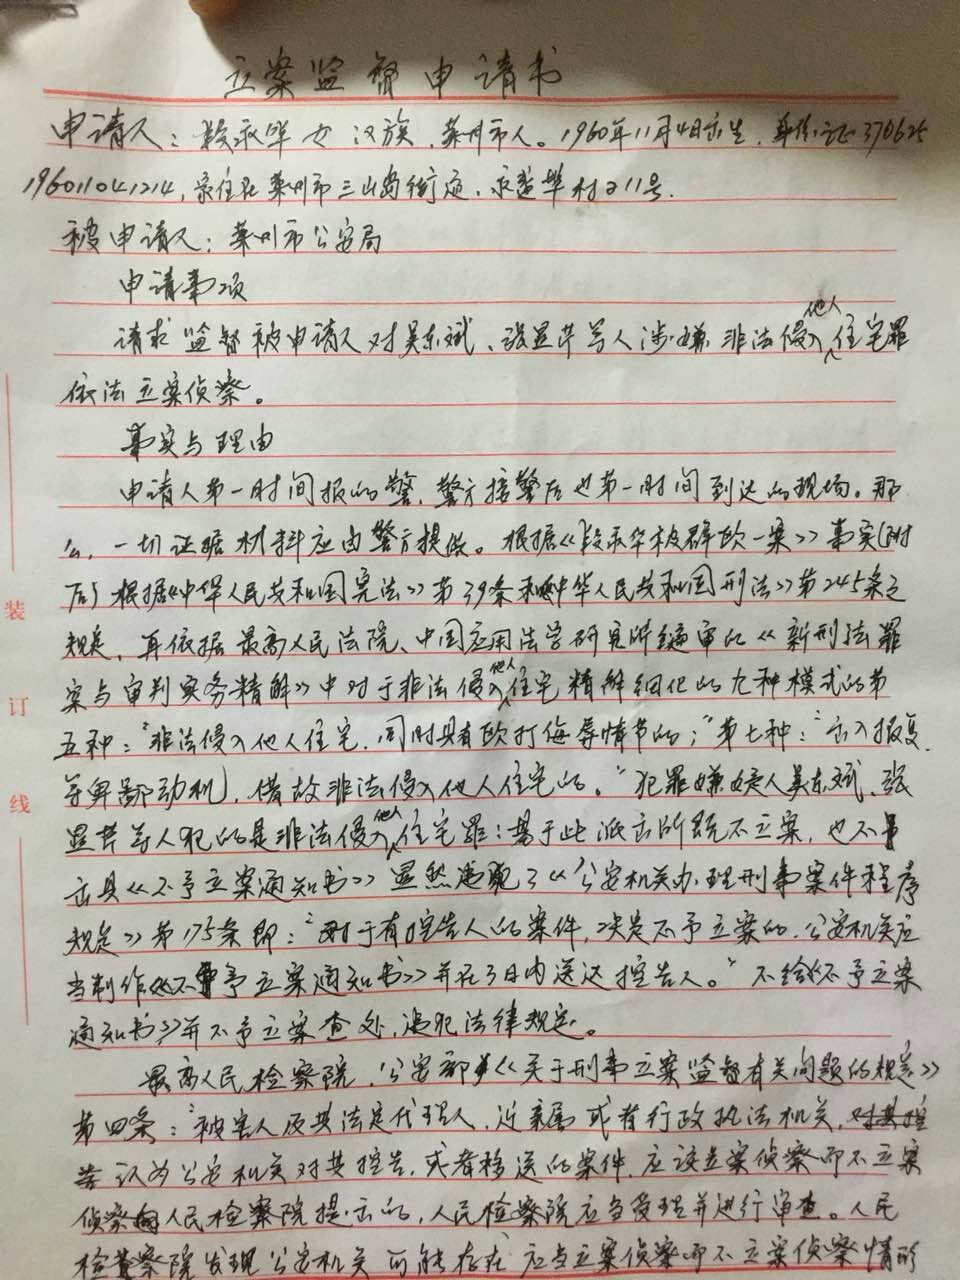 立案监督申请书
申请人：段永华 女 汉族，莱州市人。1960年11月4日出生，身份证370625
196011041214，家住在莱州市三山岛街道，永盛埠村211号。
被申请人：莱州市公安局
申请事项
请求监督被申请人对吴东斌、张显芹等人涉嫌非法侵入他人住宅罪
依法立案侦察。
事实与理由
申请人第一时间报的警，警方接警后也第一时间到达的现场。那
么，一切证据材料应由警方提供。根据《段永华被群殴一案》事实(附
后)根据《中华人民共和国宪法》第39条和《中华人民共和国刑法》第245条之
规定，再依据最高人民法院、中国应用法学研究所编审的《新刑法罪
案与审判实务精解》中对于非法侵入他人住宅精解细化的九种模式的第
五种："非法侵入他人住宅，同时具有殴打侮辱情节的；"第七种："出入报复、
等卑鄙动机，借故非法侵入他人住宅的。"犯罪嫌疑人吴东斌，张
显芹等人犯的是非法侵入他人住宅罪：基于此派出所既不立案，也不
出具《不予立案通知书》显然违现了《公安机关办理刑事案件程序
规定》第175条即："对于有控告人的案件，决定不予立案的，公安机关应
当制作《不予立案通知书》并在3日内送达控告人。"不给《不予立案
通知书》并不予立案查处，违犯法律规定。
最高人民检察院，公安部《关于刑事立案监督有关问题的规定》
第四条："被害人及其法定代理人，近亲属或者行政执法机关，对其控
告认为公安机关对其控告或者移送的案件，应该立案侦察而不立案
侦察向人民检察院提出的，人民检察院应当受理并进行审查。人民
检察院发现公安机关可能存在应当立案侦察而不立案侦察情形
装
订
线